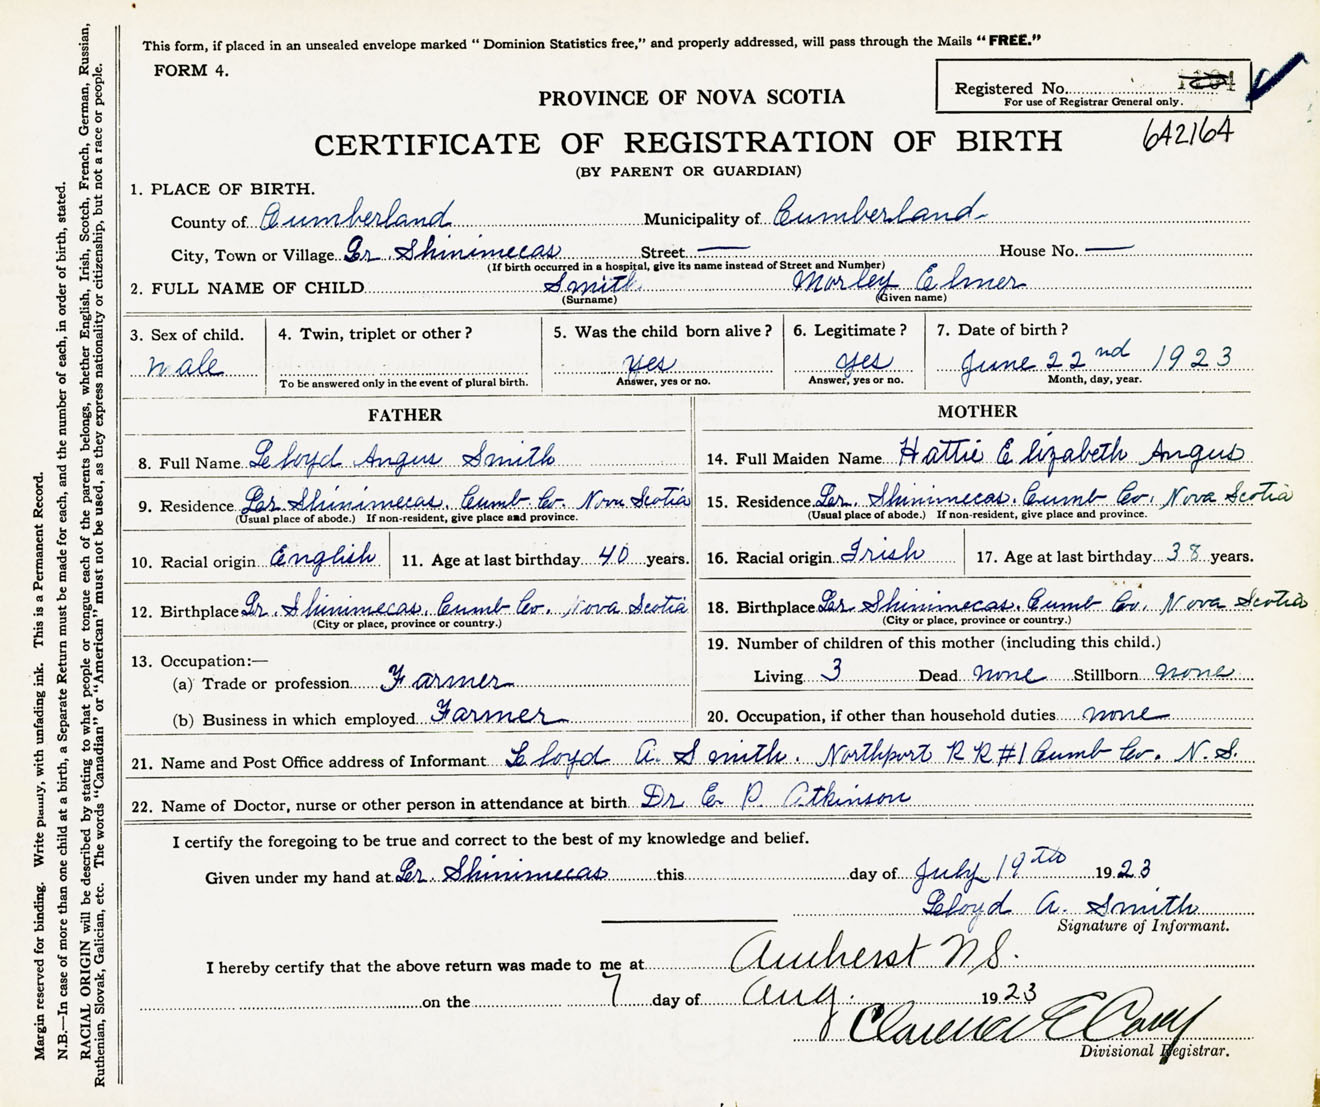 This form, if placed in an unsealed envelope marked " Dominion Statistics free," and properly addressed, will pass through the Mails "FREE."
FORM 4.
Registered No.
For use of Registrar General only.
642164
PROVINCE OF NOVA SCOTIA
CERTIFICATE OF REGISTRATION OF BIRTH
(BY PARENT OR GUARDIAN)
1. PLACE OF BIRTH.
County of Cumberland Municipality of Cumberland
City, Town or Village Gr. Shinimecas Street — House No. —
(If birth occurred in a hospital, give its name instead of Street and Number)
2. FULL NAME OF CHILD Smith Morley Elmer
(Surname) (Given name)
3. Sex of child. 4. Twin, triplet or other? 5. Was the child born alive? 6. Legitimate? 7. Date of birth?
male yes yes June 22nd 1923
To be answered only in the event of plural birth. Answer, yes or no. Answer, yes or no. Month, day, year.
FATHER
8. Full Name Lloyd Angus Smith
9. Residence Gr. Shinimecas. Cumb Co. Nova Scotia
(Usual place of abode.) If non-resident, give place and province.
10. Racial origin English 11. Age at last birthday 40 years.
12. Birthplace Gr. Shinimecas. Cumb Co. Nova Scotia
(City or place, province or country.)
13. Occupation:—
(a) Trade or profession Farmer
(b) Business in which employed Farmer
MOTHER
14. Full Maiden Name Hattie Elizabeth Angus
15. Residence Gr. Shinimecas. Cumb Co. Nova Scotia
(Usual place of abode.) If non-resident, give place and province.
16. Racial origin Irish 17. Age at last birthday 38 years.
18. Birthplace Gr. Shinimecas. Cumb Co. Nova Scotia
(City or place, province or country.)
19. Number of children of this mother (including this child.)
Living 3 Dead none Stillborn none
20. Occupation, if other than household duties none
21. Name and Post Office address of Informant Lloyd A. Smith. Northport R R #1 Cumb Co. N. S.
22. Name of Doctor, nurse or other person in attendance at birth Dr E. P. Atkinson
I certify the foregoing to be true and correct to the best of my knowledge and belief.
Given under my hand at Gr. Shinimecas this day of July 19th 1923
Lloyd A. Smith
Signature of Informant.
I hereby certify that the above return was made to me at Amherst N.S.
on the 7 day of Aug. 1923
Clarence E
Divisional Registrar.
Margin reserved for binding. Write plainly, with unfading ink. This is a Permanent Record.
N.B.—In case of more than one child at a birth, a Separate Return must be made for each, and the number of each, in order of birth, stated.
RACIAL ORIGIN will be described by stating to what people or tongue each of the parents belongs, whether English, Irish, Scotch, French, German, Russian,
Ruthenian, Slovak, Galician, etc. The words "Canadian" or "American" must not be used, as they express nationality or citizenship, but not a race or people.